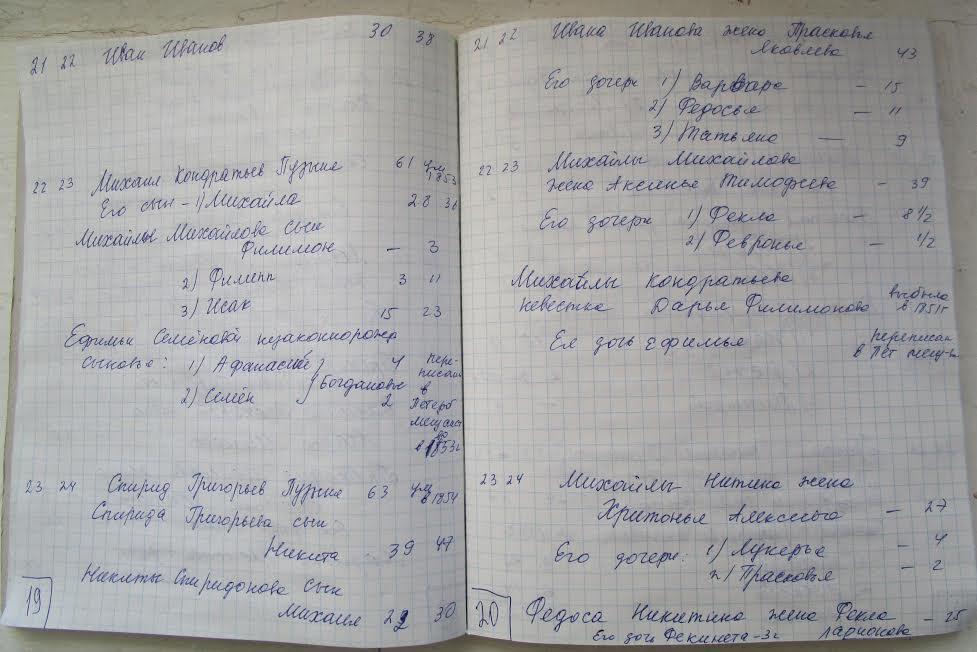 21 22 Иван Иванов 30 38
22 23 Михаил Кондратьев Пузыня 61 ум. 1853
Его сын - 1) Михайла 28 36
Михайлы Михайлова сын
Филимон - 3
2) Филипп 3 11
3) Исак 15 23
Ефимьи Семёновой незаконнорожд
сыновья: 1) Афанасий } 4 пере-
писаны
2) Семён } Богдановы 2 в
Петерб
мещанст
во
в 1853г
23 24 Спирид Григорьев Пузыня 63 ум в 1854
Спирида Григорьева сын
Никита 39 47
Никиты Спиридонова сын
Михаил 22 30
19
21 22 Ивана Иванова жена Прасковья
Яковлева 43
Его дочери 1) Варвара - 15
2) Федосья - 11
3) Татьяна - 9
22 23 Михайлы Михайлова
жена Аксинья Тимофеева - 39
Его дочери 1) Фекла - 8 1/2
2) Февронья - 1/2
Михайлы Кондратьева
невестка Дарья Филимонова выбыла
в 1851г
Ея дочь Ефимья переписан
в Пет мещ-во
23 24 Михайлы Никитина жена
Харитонья Алексеева - 27
Его дочери: 1) Лукерья - 4
2) Прасковья - 2
20 Федоса Никитина жена Фекла - 25
Его дочь Фекинета - 3г Ларионова